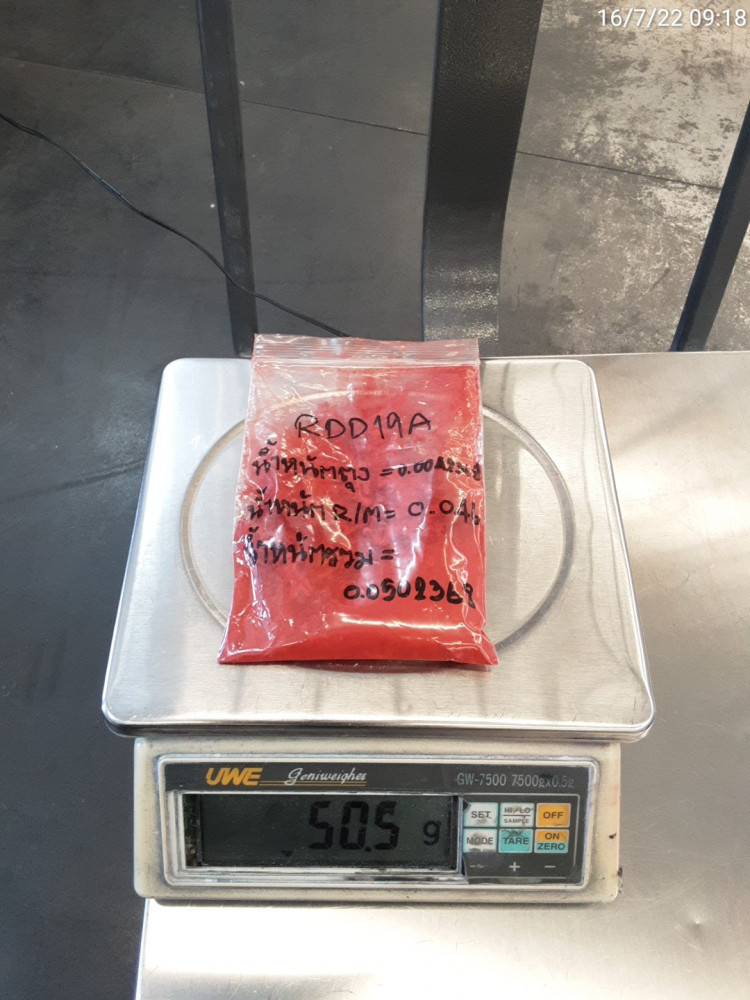 16/7/22 09:18
RDD19A
น้ำหนักถุง =
น้ำหนัก R/M =
น้ำหนักรวม =
0.0502368
UWE Geniweigher GW-7500 7500gx0.5g
50.5 g
SET HI-LO SAMPLE OFF
MODE TARE ON ZERO